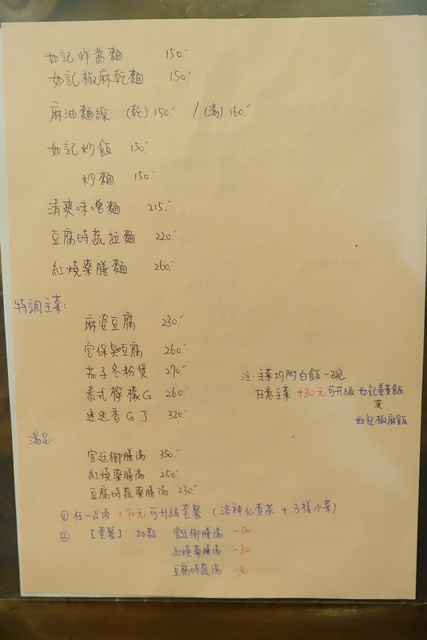 如記炸醬麵 150.-
如記椒麻乾麵 150.-
麻油麵線 (乾) 150.- / (湯) 160.-
如記炒飯 150.-
炒麵 150.-
清爽味噌麵 215.-
豆腐時蔬拉麵 220.-
紅燒藥膳麵 260.-
特調主菜:
麻婆豆腐 230.-
宮保臭豆腐 260.-
茄子冬粉煲 270.-
泰式檸檬G 260.-
迷迭香GJ 320.-
注: 主菜均附白飯一碗
任意主菜 +30元可升級 如記薑黃飯
或
如記椒麻飯
湯品:
宮廷御膳湯 350.-
紅燒藥膳湯 250.-
豆腐時蔬藥膳湯 230.-
① 任一品項 +70元 可升級套餐 (洛神化香茶 + 3樣小菜)
② 【套餐】 加點 宮廷御膳湯 -50
紅燒藥膳湯 -30
豆腐時蔬湯 -30